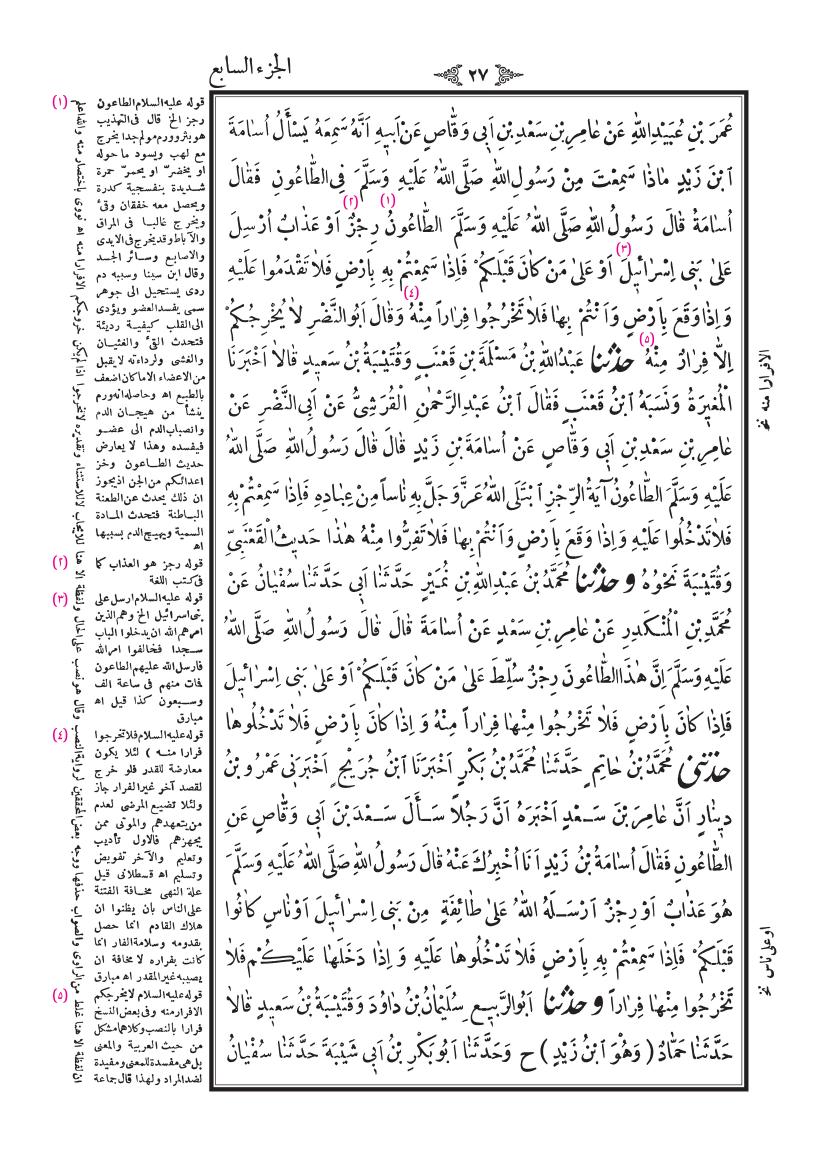 الجزء السابع
٢٧
عُمَرَ بْنِ عُبَيْدِ اللّٰهِ عَنْ عَامِرِ بْنِ سَعْدِ بْنِ اَبى وَقَّاصٍ عَنْ اَبيهِ اَنَّهُ سَمِعَهُ يَسْأَلُ اُسَامَةَ
ابْنَ زَيْدٍ مَاذَا سَمِعْتَ مِنْ رَسُولِ اللّٰهِ صَلَّى اللّٰهُ عَلَيْهِ وَسَلَّمَ فِى الطَّاعُونِ فَقَالَ
اُسَامَةُ قَالَ رَسُولُ اللّٰهِ صَلَّى اللّٰهُ عَلَيْهِ وَسَلَّمَ الطَّاعُونُ (١) رِجْزٌ (٢) اَوْ عَذَابٌ اُرْسِلَ
عَلىٰ بَنى اِسْرَائيلَ (٣) اَوْ عَلىٰ مَنْ كَانَ قَبْلَكُمْ فَاِذَا سَمِعْتُمْ بِهِ بِاَرْضٍ فَلاٰ تَقْدَمُوا عَلَيْهِ
وَ اِذَا وَقَعَ بِاَرْضٍ وَاَنْتُمْ بِهَا فَلاٰ تَخْرُجُوا فِرَاراً مِنْهُ (٤) وَقَالَ اَبُو النَّضْرِ لاٰ يُخْرِجُكُمْ
اِلاَّ فِرَارٌ مِنْهُ (٥) حَدَّثَنَا عَبْدُ اللّٰهِ بْنُ مَسْلَمَةَ بْنِ قَعْنَبٍ وَقُتَيْبَةُ بْنُ سَعيدٍ قَالاٰ اَخْبَرَنَا
الْمُغيرَةُ وَنَسَبَهُ ابْنُ قَعْنَبٍ فَقَالَ ابْنُ عَبْدِ الرَّحْمٰنِ الْقُرَشِىُّ عَنْ اَبِى النَّضْرِ عَنْ
عَامِرِ بْنِ سَعْدِ بْنِ اَبى وَقَّاصٍ عَنْ اُسَامَةَ بْنِ زَيْدٍ قَالَ قَالَ رَسُولُ اللّٰهِ صَلَّى اللّٰهُ
عَلَيْهِ وَسَلَّمَ الطَّاعُونُ آيَةُ الرِّجْزِ ابْتَلَى اللّٰهُ عَزَّ وَجَلَّ بِهِ نَاساً مِنْ عِبَادِهِ فَاِذَا سَمِعْتُمْ بِهِ
فَلاٰ تَدْخُلُوا عَلَيْهِ وَاِذَا وَقَعَ بِاَرْضٍ وَاَنْتُمْ بِهَا فَلاٰ تَفِرُّوا مِنْهُ هٰذَا حَديثُ الْقَعْنَبِىِّ
وَقُتَيْبَةَ نَحْوُهُ وَحَدَّثَنَا مُحَمَّدُ بْنُ عَبْدِ اللّٰهِ بْنِ نُمَيْرٍ حَدَّثَنَا اَبى حَدَّثَنَا سُفْيَانُ عَنْ
مُحَمَّدِ بْنِ الْمُنْكَدِرِ عَنْ عَامِرِ بْنِ سَعْدٍ عَنْ اُسَامَةَ قَالَ قَالَ رَسُولُ اللّٰهِ صَلَّى اللّٰهُ
عَلَيْهِ وَسَلَّمَ اِنَّ هٰذَا الطَّاعُونَ رِجْزٌ سُلِّطَ عَلىٰ مَنْ كَانَ قَبْلَكُمْ اَوْ عَلىٰ بَنى اِسْرَائيلَ
فَاِذَا كَانَ بِاَرْضٍ فَلاٰ تَخْرُجُوا مِنْهَا فِرَاراً مِنْهُ وَ اِذَا كَانَ بِاَرْضٍ فَلاٰ تَدْخُلُوهَا
حَدَّثَنى مُحَمَّدُ بْنُ حَاتِمٍ حَدَّثَنَا مُحَمَّدُ بْنُ بَكْرٍ اَخْبَرَنَا ابْنُ جُرَيْجٍ اَخْبَرَنى عَمْرُو بْنُ
دينَارٍ اَنَّ عَامِرَ بْنَ سَعْدٍ اَخْبَرَهُ اَنَّ رَجُلاً سَأَلَ سَعْدَ بْنَ اَبى وَقَّاصٍ عَنِ
الطَّاعُونِ فَقَالَ اُسَامَةُ بْنُ زَيْدٍ اَنَا اُخْبِرُكَ عَنْهُ قَالَ رَسُولُ اللّٰهِ صَلَّى اللّٰهُ عَلَيْهِ وَسَلَّمَ
هُوَ عَذَابٌ اَوْ رِجْزٌ اَرْسَلَهُ اللّٰهُ عَلىٰ طَائِفَةٍ مِنْ بَنى اِسْرَائيلَ اَوْ نَاسٍ كَانُوا
قَبْلَكُمْ فَاِذَا سَمِعْتُمْ بِهِ بِاَرْضٍ فَلاٰ تَدْخُلُوهَا عَلَيْهِ وَ اِذَا دَخَلَهَا عَلَيْكُمْ فَلاٰ
تَخْرُجُوا مِنْهَا فِرَاراً وَحَدَّثَنَا اَبُو الرَّبيعِ سُلَيْمَانُ بْنُ دَاوُدَ وَقُتَيْبَةُ بْنُ سَعيدٍ قَالاٰ
حَدَّثَنَا حَمَّادٌ ( وَهُوَ ابْنُ زَيْدٍ ) ح وَحَدَّثَنَا اَبُو بَكْرِ بْنُ اَبى شَيْبَةَ حَدَّثَنَا سُفْيَانُ
الا فرارا منه نخ
او على ناس نخ
(١) قوله عليه السلام الطاعون
رجز الخ قال فى التهذيب
هو بثر وورم مولم جدا يخرج
مع لهب ويسود ما حوله
او يخضرّ او يحمرّ حمرة
شديدة بنفسجية كدرة
ويحصل معه خفقان وقئ
ويخرج غالبا فى المراق
والآباط وقد يخرج فى الايدى
والاصابع وسائر الجسد
وقال ابن سينا وسببه دم
ردى يستحيل الى جوهر
سمى يفسد العضو ويؤدى
الى القلب كيفية رديئة
فتحدث القئ والغثيان
والغشى ولرداءته لا يقبل
من الاعضاء الا ما كان اضعف
بالطبع اه وحاصله انه ورم
ينشأ من هيجان الدم
وانصباب الدم الى عضو
فيفسده وهذا لا يعارض
حديث الطاعون وخز
اعدائكم من الجن اذ يجوز
ان ذلك يحدث عن الطعنة
الباطنة فتحدث المادة
السمية ويهيج الدم بسببها
اه
(٢) قوله رجز هو العذاب كما
فى كتب اللغة
(٣) قوله عليه السلام ارسل على
بنى اسرائيل الخ وهم الذين
امرهم الله ان يدخلوا الباب
سجدا فخالفوا امر الله
فارسل الله عليهم الطاعون
فمات منهم فى ساعة الف
وسبعون كذا قيل اه
مبارق
(٤) قوله عليه السلام فلا تخرجوا
فرارا منه ) لئلا يكون
معارضة للقدر فلو خرج
لقصد آخر غير الفرار جاز
ولئلا تضيع المرضى لعدم
من يتعهدهم والموتى ممن
يجهزهم فالاول تأديب
وتعليم والآخر تفويض
وتسليم اه قسطلانى قيل
علة النهى مخافة الفتنة
على الناس بان يظنوا ان
هلاك القادم انما حصل
بقدومه وسلامة الفار انما
كانت بفراره لا مخافة ان
يصيبه غير المقدر اه مبارق
(٥) قوله عليه السلام لا يخرجكم
الا فرار منه وفى بعض النسخ
فرارا بالنصب وكلاهما مشكل
من حيث العربية والمعنى
بل هى مفسدة للمعنى ومفيدة
لضد المراد ولهذا قال جماعة
ان لفظة الا هنا غلط من الراوى والصواب حذفها ووجه بعض المحققين لرواية النصب وقال هو نصب على الحال ولفظة الا هنا للايجاب لا للاستثناء وتقديره لا تخرجوا اذا لم يكن خروجكم الا فرارا منه اه نووى باختصار منه والله اعلم